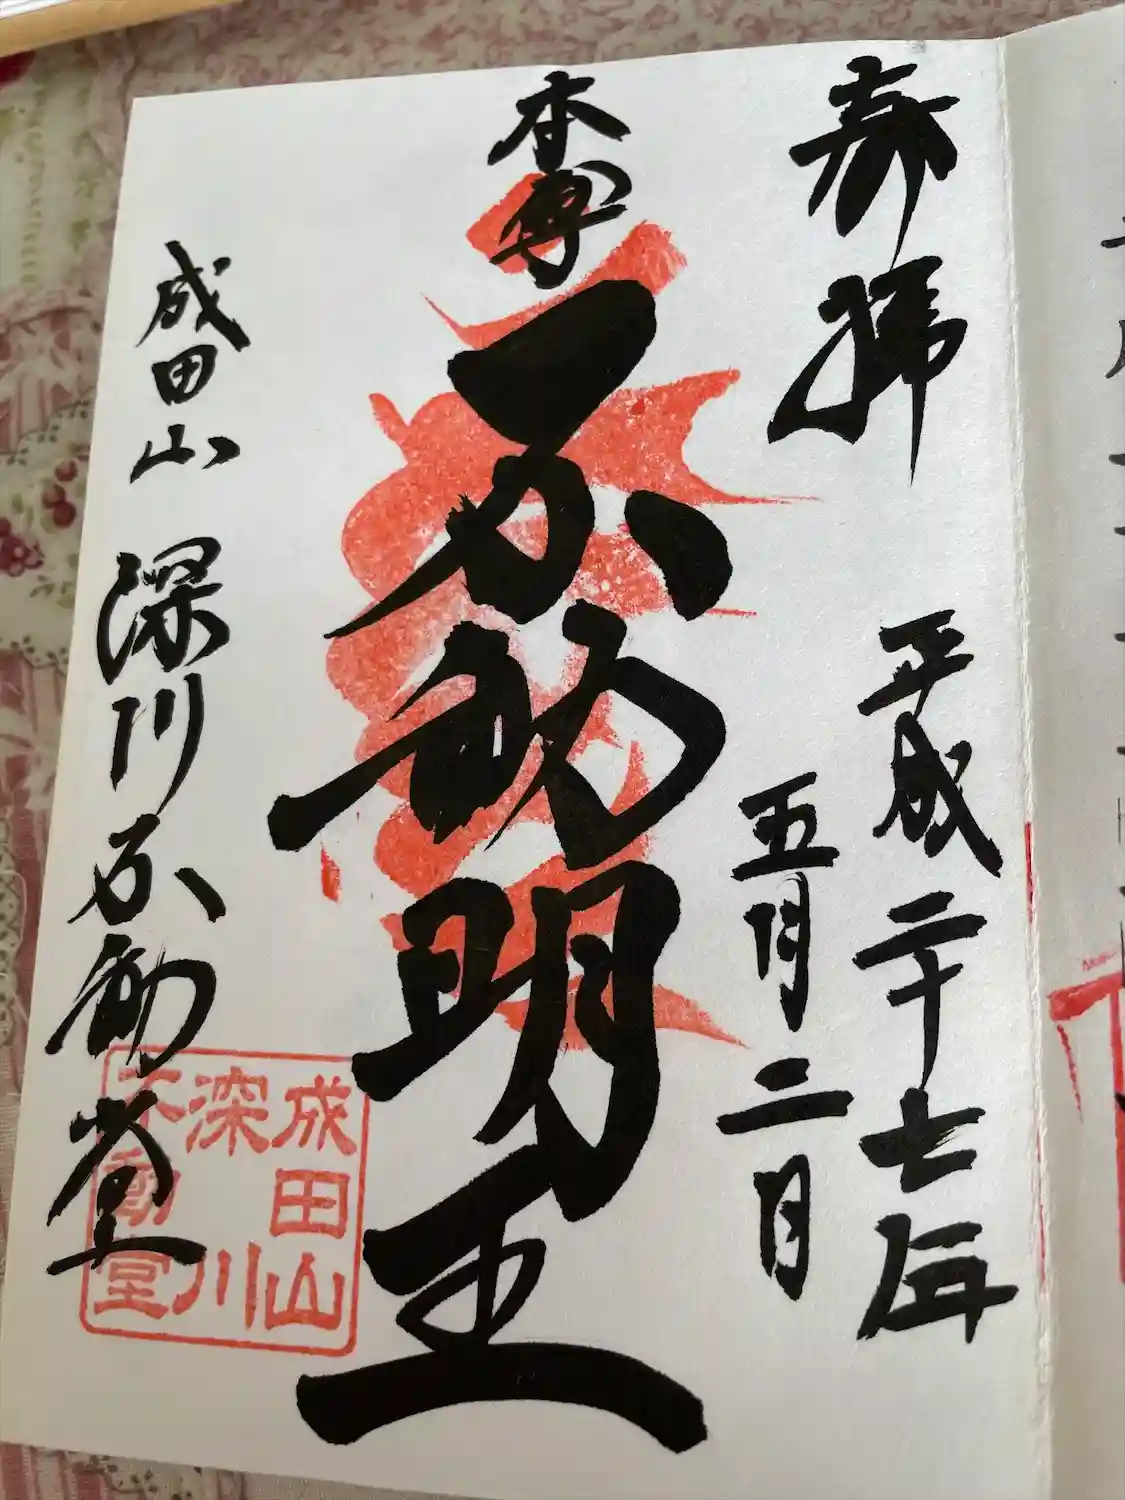 奉拝
平成二十七年
五月二日
本尊
不動明王
成田山 深川不動堂
成田山
深川
不動堂